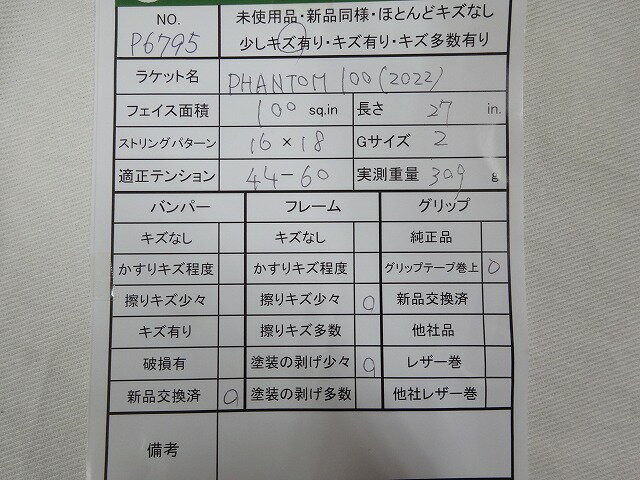 NO. 未使用品・新品同様・ほとんどキズなし
P6795 少しキズ有り・キズ有り・キズ多数有り
ラケット名 PHANTOM 100 (2022)
フェイス面積 100 sq.in 長さ 27 in.
ストリングパターン 16×18 Gサイズ 2
適正テンション 44-60 実測重量 309 g
バンパー フレーム グリップ
キズなし キズなし 純正品
かすりキズ程度 かすりキズ程度 グリップテープ巻上 O
擦りキズ少々 擦りキズ少々 O 新品交換済
キズ有り 擦りキズ多数 他社品
破損有 塗装の剥げ少々 O レザー巻
新品交換済 O 塗装の剥げ多数 他社レザー巻
備考